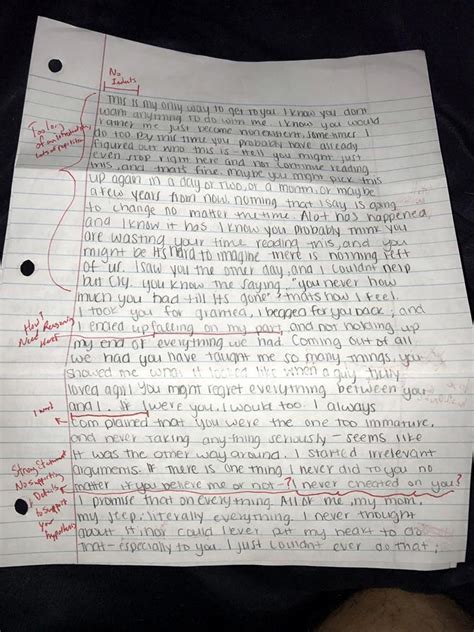 No
Indents
This is my only way to get to you I know you don't
want anything to do with me. I know you would
rather me just become nonexistent, sometimes I
do too. By this time you probably have already
figured out who this is - Hell you might just
even stop right here and not continue reading
this, and that's fine. maybe you might pick this
up again in a day or two, or a month, or maybe
a few years from now. nothing that I say is going
to change no matter the time. Alot has happened,
and I know it has. I know you probably think you
are wasting your time reading this, and you
might be. It's hard to imagine there is nothing left
of "us". I saw you the other day, and I couldn't help
but cry. you know the saying, "you never know
much you had till its gone", thats how I feel.
I took you for granted, I begged for you back, and
I ended up falling on my part, and not holding up
my end of everything we had. Coming out of all
we had you have taught me so many things. you
showed me what it looked like when a guy fully
loved a girl. You might regret everything between you
and I. If I were you, I would too. I always
complained that you were the one too immature,
and never taking anything seriously - seems like
it was the other way around. I started irrelevant
arguments. If there is one thing I never did to you no
matter if you believe me or not -? I never cheated on you?
I promise that on everything. All of me, my mom,
my jeep, literally everything. I never thought
about it, nor could I ever put my heart to do
that - especially to you. I just couldn't ever do that;
Too long
of an introduction,
lots of repetition
How?
Need Reasoning
Here
1 word
Strong Statement
No supporting
Details
to support
your
hypothesis